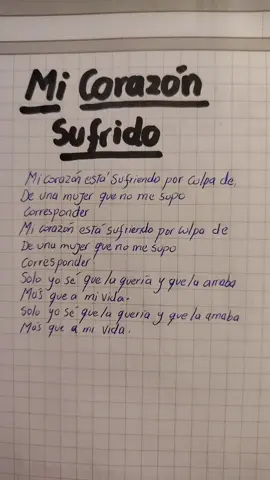 Mi Corazón
Sufrido
Mi Corazón está sufriendo por culpa de.
De una mujer que no me supo
Corresponder
Mi corazón está sufriendo por culpa de
De una mujer que no me supo
Corresponder
Solo yo sé que la quería y que la amaba
Más que a mi vida.
Solo yo sé que la quería y que la amaba
Más que a mi vida.